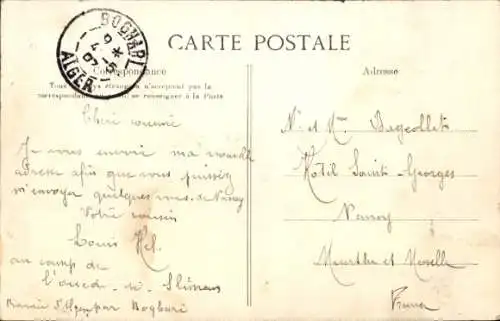 BOGHARI
9 *
4 -5
07
ALGER
CARTE POSTALE
Correspondance
Tous les pays étrangers n'acceptent pas la
correspondance se renseigner à la Poste
Adresse
Cher cousine
Je vous envoie ma nouvelle
adresse afin que vous puissiez
m'envoyer quelques vues de Nancy
Votre cousin
Louis Hel.
au camp de
l'oued - Slimen
par Boghari
M et Mme Bageollet
Hôtel Saint-Georges
Nancy
Meurthe et Moselle
France